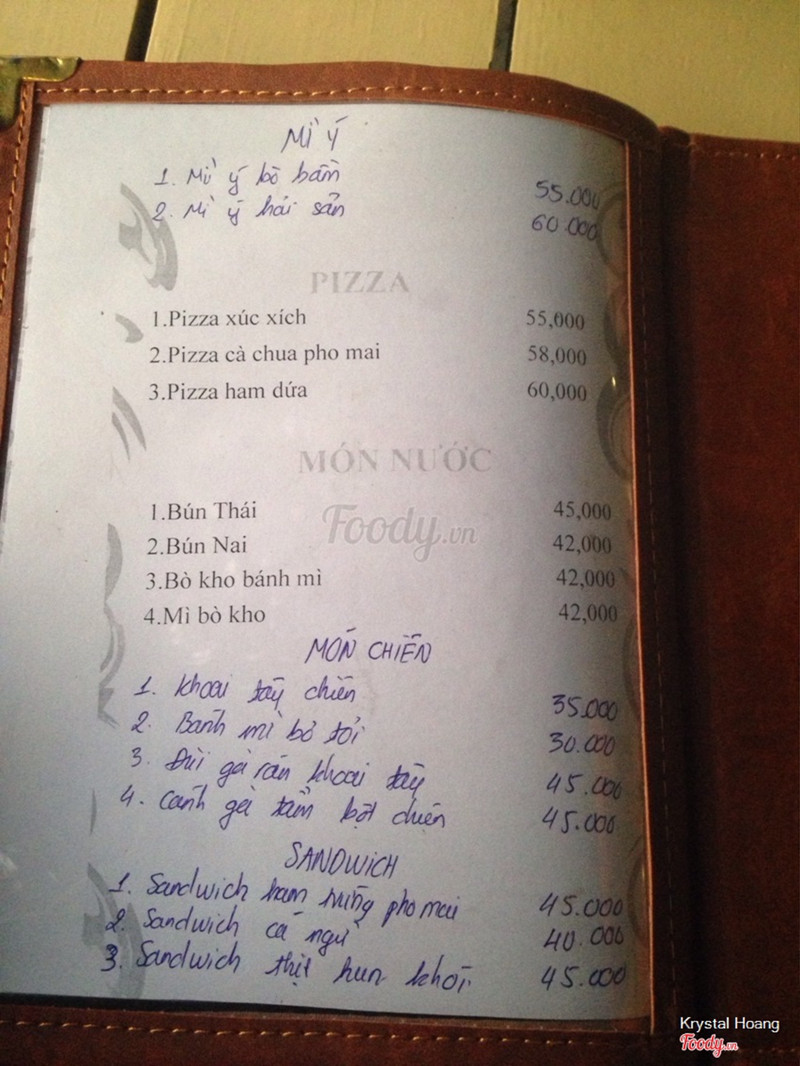 MÌ Ý
1. Mì ý bò bằm 55.000
2. Mì ý hải sản 60.000
PIZZA
1.Pizza xúc xích 55,000
2.Pizza cà chua pho mai 58,000
3.Pizza ham dứa 60,000
MÓN NƯỚC
1.Bún Thái 45,000
2.Bún Nai 42,000
3.Bò kho bánh mì 42,000
4.Mì bò kho 42,000
Foody.vn
MÓN CHIÊN
1. Khoai tây chiên 35.000
2. Bánh mì bơ tỏi 30.000
3. Đùi gà rán khoai tây 45.000
4. Cánh gà tẩm bột chiên 45.000
SANDWICH
1. Sandwich ham trứng pho mai 45.000
2. Sandwich cá ngừ 40.000
3. Sandwich thịt hun khói 45.000
Krystal Hoang
Foody.vn